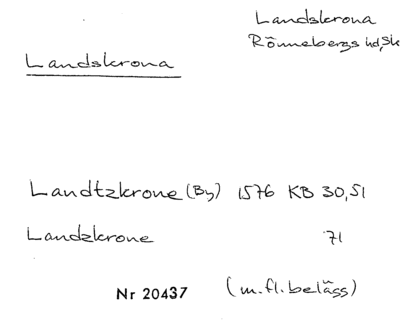 Landskrona
Rönnebergs hd, Sk
Landskrona
Landtzkrone (By) 1576 KB 30,51
Landzkrone 71
Nr 20437 (m.fl.belägg)